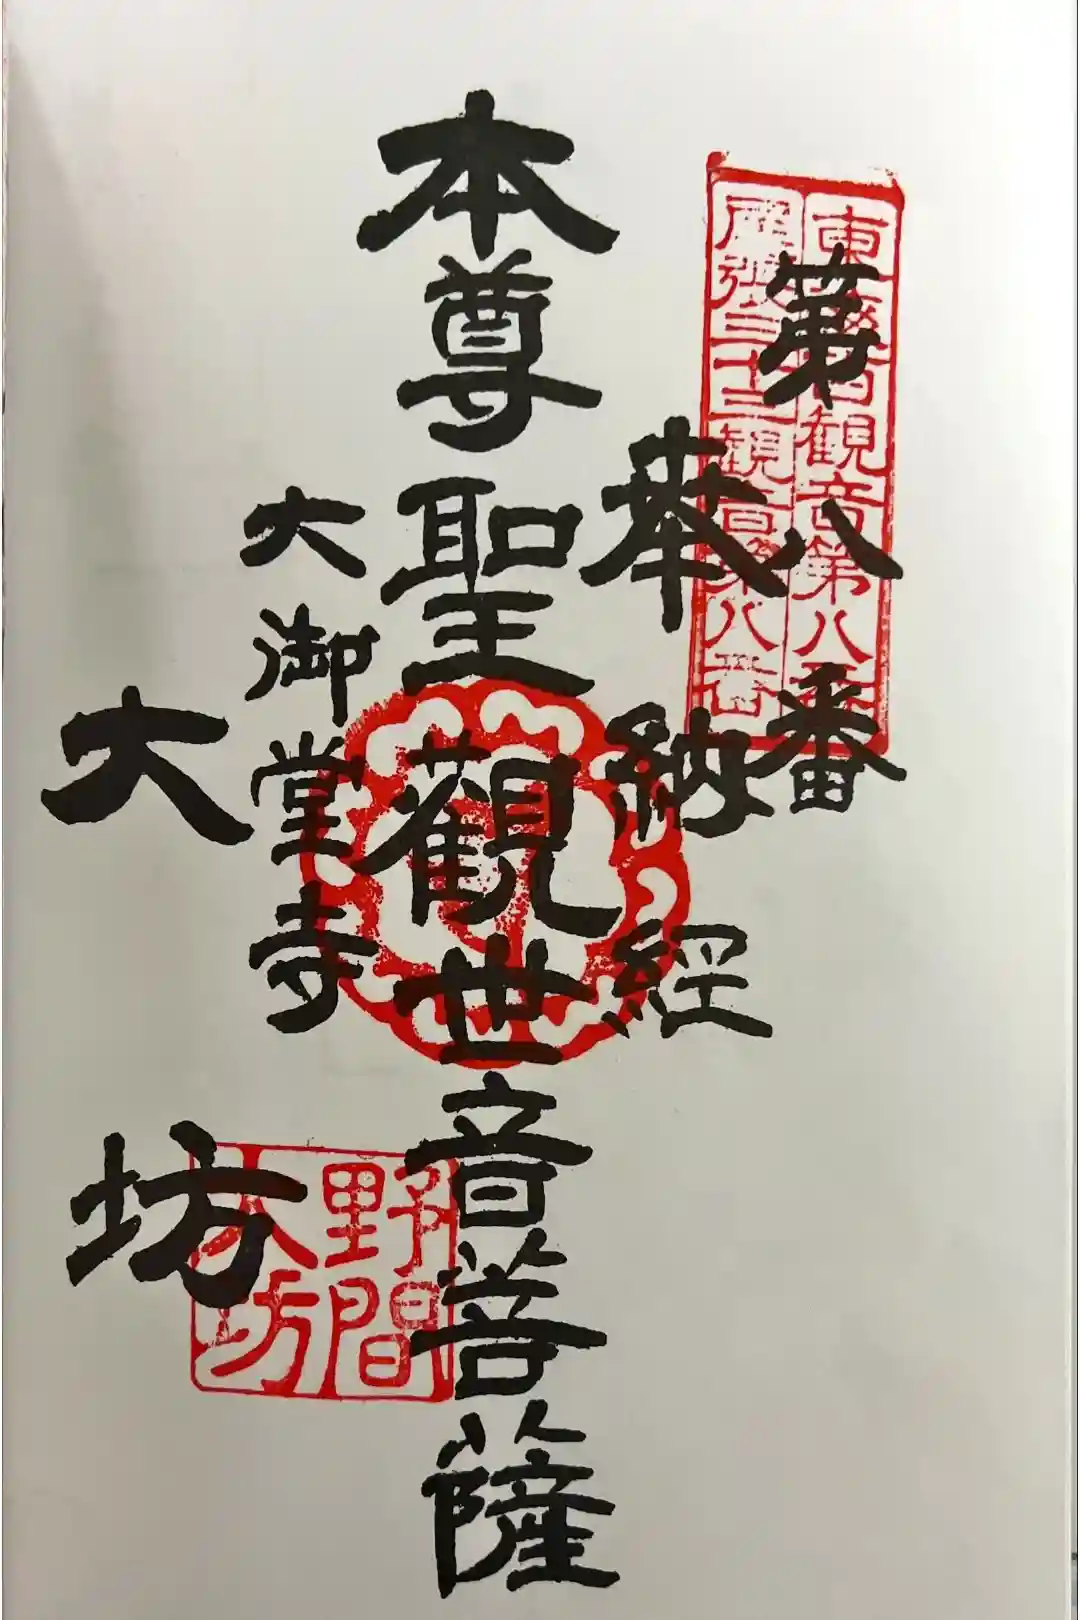 第八番
東海百観音第八番
尾張三十三観音第八番
奉納経
本尊聖観世音菩薩
大御堂寺
大坊
野間
大坊